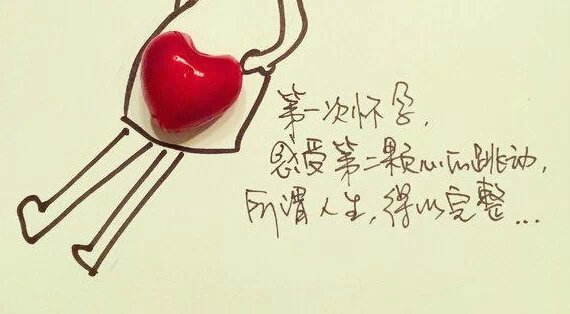 第一次怀孕,
感受第二颗心的跳动,
所谓人生,得以完整...